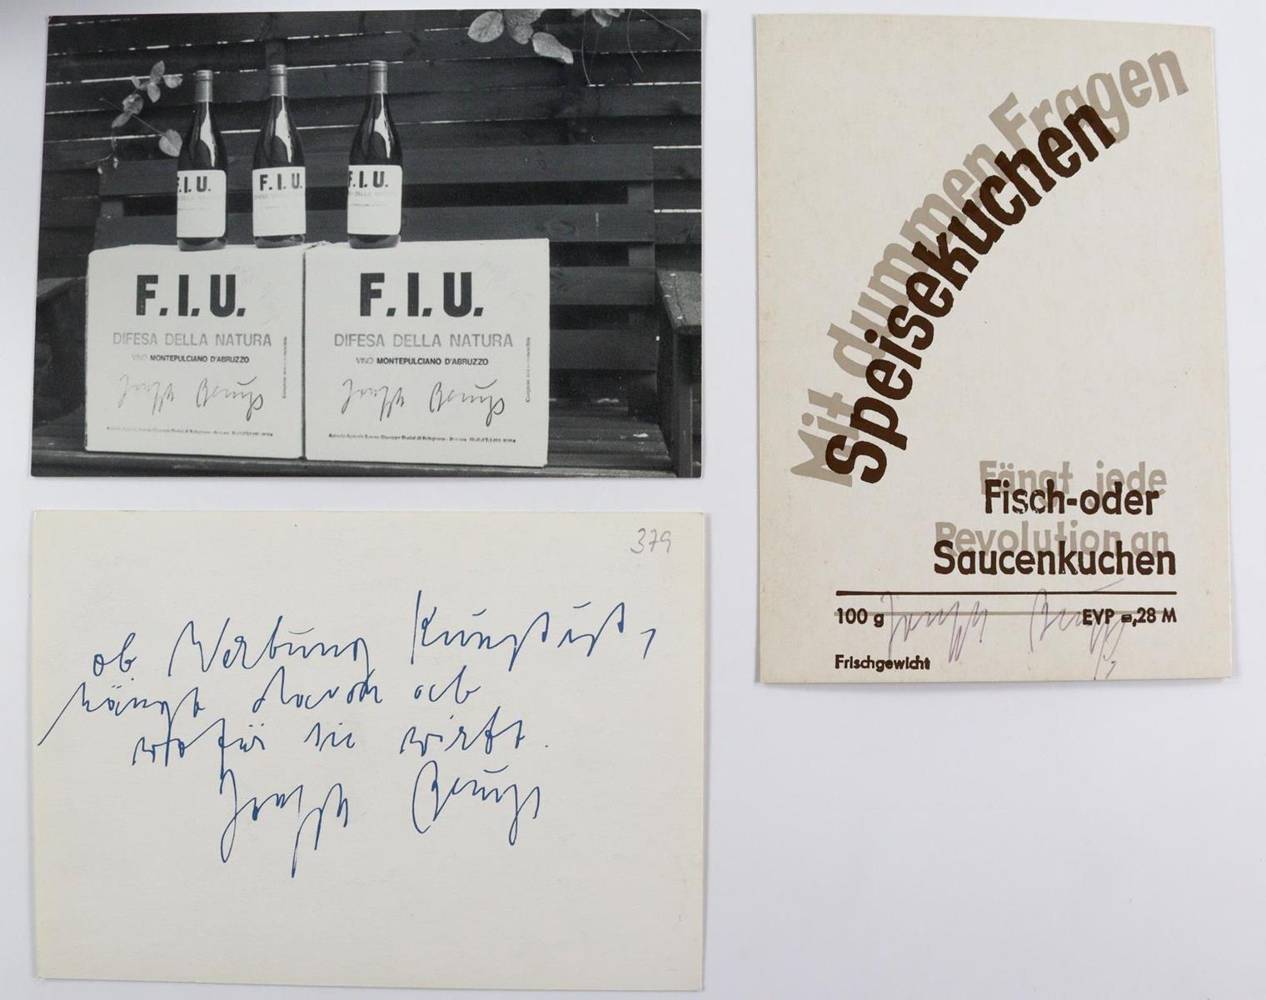 F.I.U.
F.I.U.
F.I.U.
DIFESA DELLA NATURA
F.I.U.
DIFESA DELLA NATURA
VINO MONTEPULCIANO D'ABRUZZO
Joseph Beuys
F.I.U.
DIFESA DELLA NATURA
VINO MONTEPULCIANO D'ABRUZZO
Joseph Beuys
Mit dummen Fragen
Speisekuchen
Fängt jede
Fisch-oder
Revolution an
Saucenkuchen
100 g
EVP =,28 M
Joseph Beuys
Frischgewicht
379
ob Werbung Kunst ist,
hängt davon ab
wofür sie wirbt.
Joseph Beuys